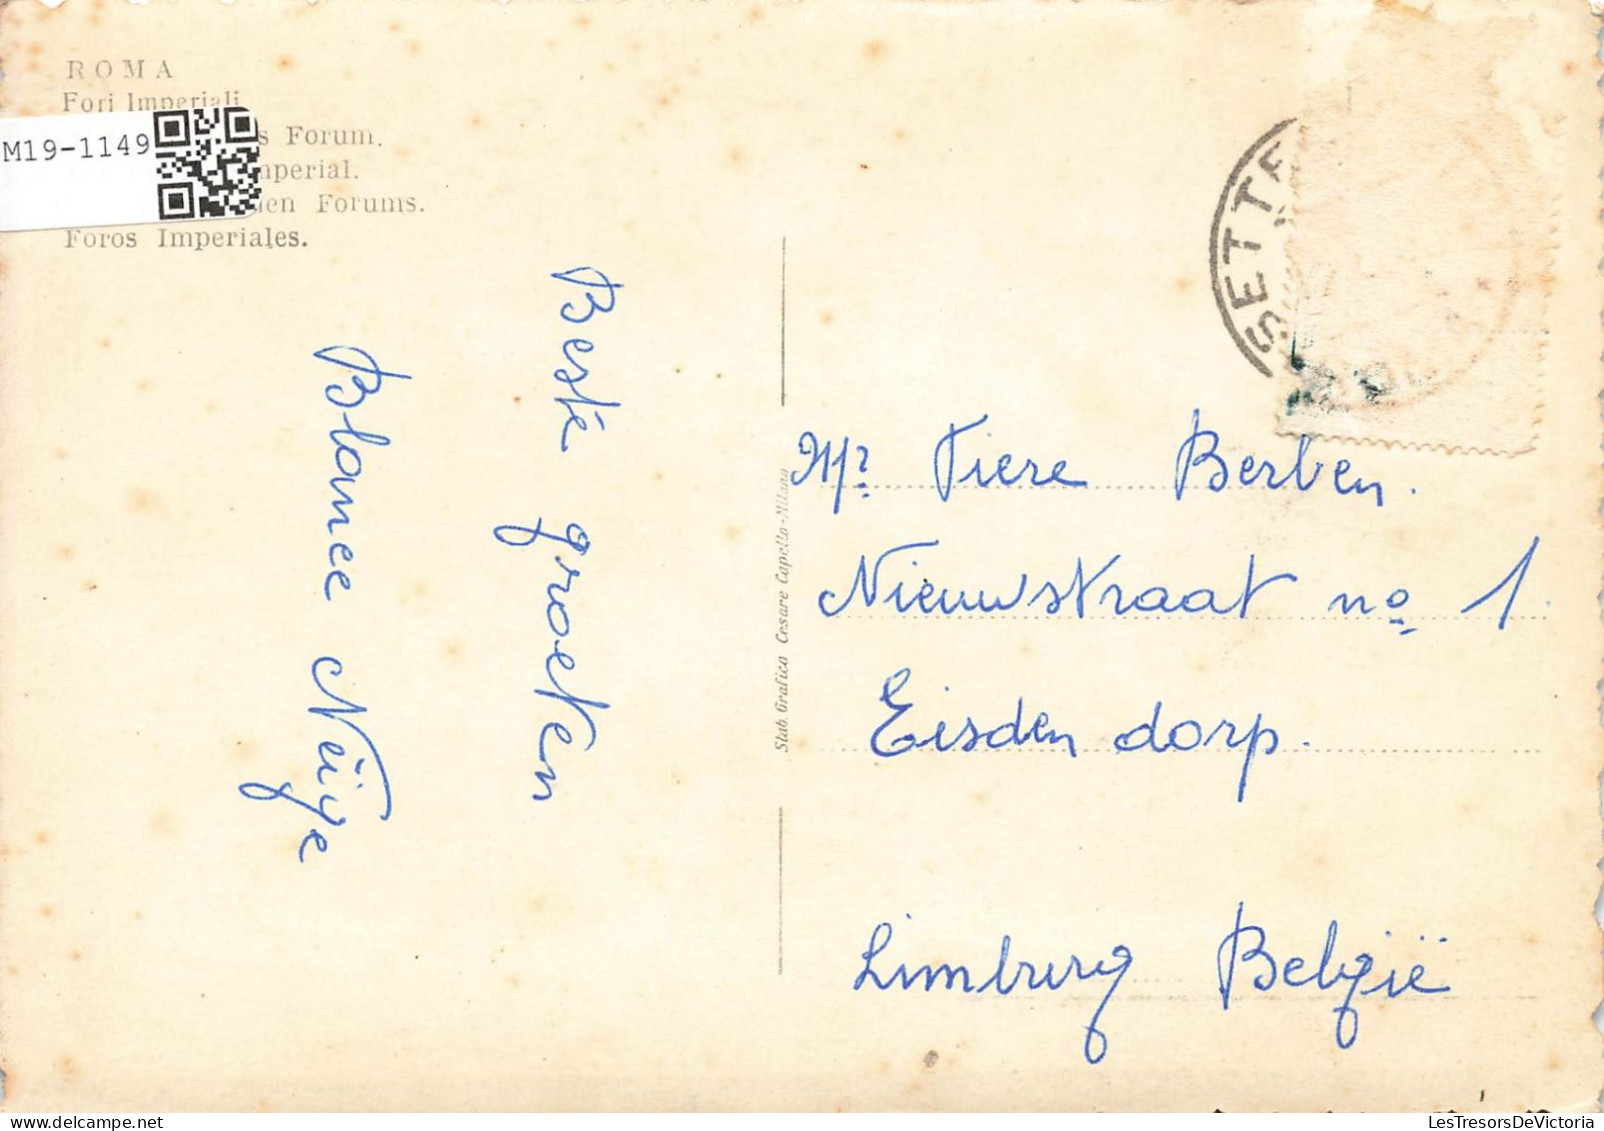 ROMA
Fori Imperiali
M19-1149
Forum.
Forums.
Foros Imperiales.
Beste groeten
Blanee
SETTE
Stab. Grafico Cesare Capello-Milano
Mr. Tiere Berben.
Nieuwstraat no 1
Eisden dorp.
Limburg België
LesTresorsDeVictoria